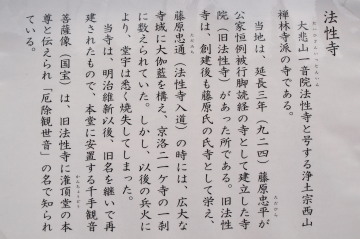 法性寺
大悲山一音院法性寺と号する浄土宗西山
禅林寺派の寺である。
当地は、延長三年（九二四）藤原忠平が
公家恒例被行御読経の寺として建立した寺
院（旧法性寺）があった所である。旧法性
寺は、創建後も藤原氏の氏寺として栄え、
藤原忠通（法性寺入道）の時には、広大な
寺域に大伽藍を構え、京洛二一ケ寺の一刹
に数えられていた。しかし、以後の兵火に
より、堂宇は悉く焼失してしまった。
当寺は、明治維新以後、旧名を継いで再
建されたもので、本堂に安置する千手観音
菩薩像（国宝）は、旧法性寺に潅頂堂の本
尊と伝えられ「厄除観世音」の名で知られ
ている。